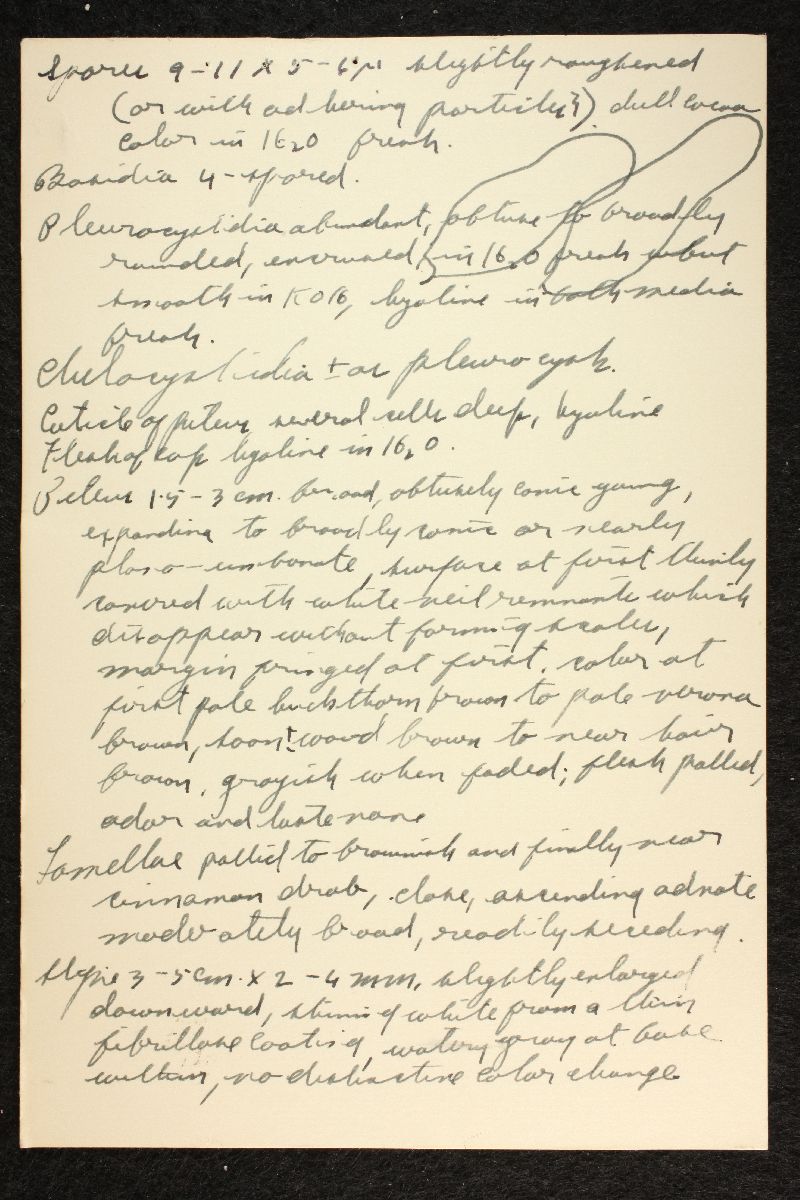 Spores 9-11 x 5-6µ slightly roughened
(or with adhering particles?) dull cocoa
color in H2O fresh.
Basidia 4-spored.
Pleurocystidia abundant, obtuse to broadly
rounded, encrusted in H2O fresh but
smooth in KOH, hyaline in both media
fresh.
Cheilocystidia ± as pleurocyst.
Cuticle of pileus several cells deep, hyaline
Flesh of cap hyaline in H2O.
Pileus 1.5-3 cm. broad, obtusely conic young,
expanding to broadly conic or nearly
plano-umbonate, surface at first thinly
covered with white veil remnants which
disappear without forming scales,
margin fringed at first. color at
first pale buckthorn brown to pale verona
brown, soon ± wood brown to near hair
brown, grayish when faded; flesh pallid,
odor and taste none
Lamellae pallid to brownish and finally near
cinnamon drab, close, ascending adnate
moderately broad, readily seceding.
Stipe 3-5 cm. x 2-4 mm, slightly enlarged
downward, shining white from a thin
fibrillose coating, watery gray at base
within, no distinctive color change